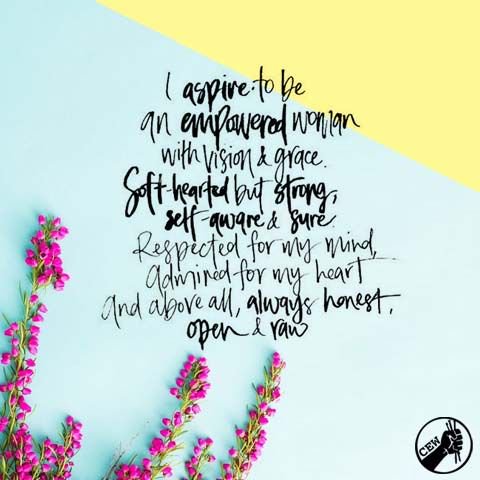 I aspire to be
an empowered woman
with vision & grace.
Soft-hearted but strong,
self-aware & sure.
Respected for my mind,
admired for my heart
and above all, always honest,
open & raw
CEW